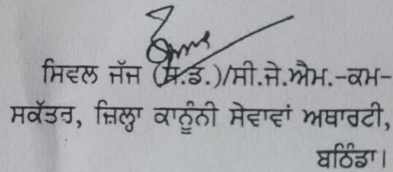 ਸਿਵਲ ਜੱਜ (ਸ.ਡ.)/ਸੀ.ਜੇ.ਐਮ.-ਕਮ-
ਸਕੱਤਰ, ਜ਼ਿਲ੍ਹਾ ਕਾਨੂੰਨੀ ਸੇਵਾਵਾਂ ਅਥਾਰਟੀ,
ਬਠਿੰਡਾ।